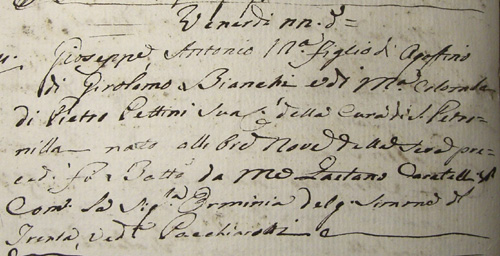 Venerdi nn. d=
Gioseppe Antonio Ma. figlio di Agostino
di Girolamo Bianchi e di Ma.
di Pietro Pettini sua della Cura di S. Petro-
nilla nato alle Ore Nove della Sera pre-
ced: fù Batto. da Me Gaetano
Com. la Sigra. Erminia del q. Simone di
Trenta, Ved. Pacchiarotti